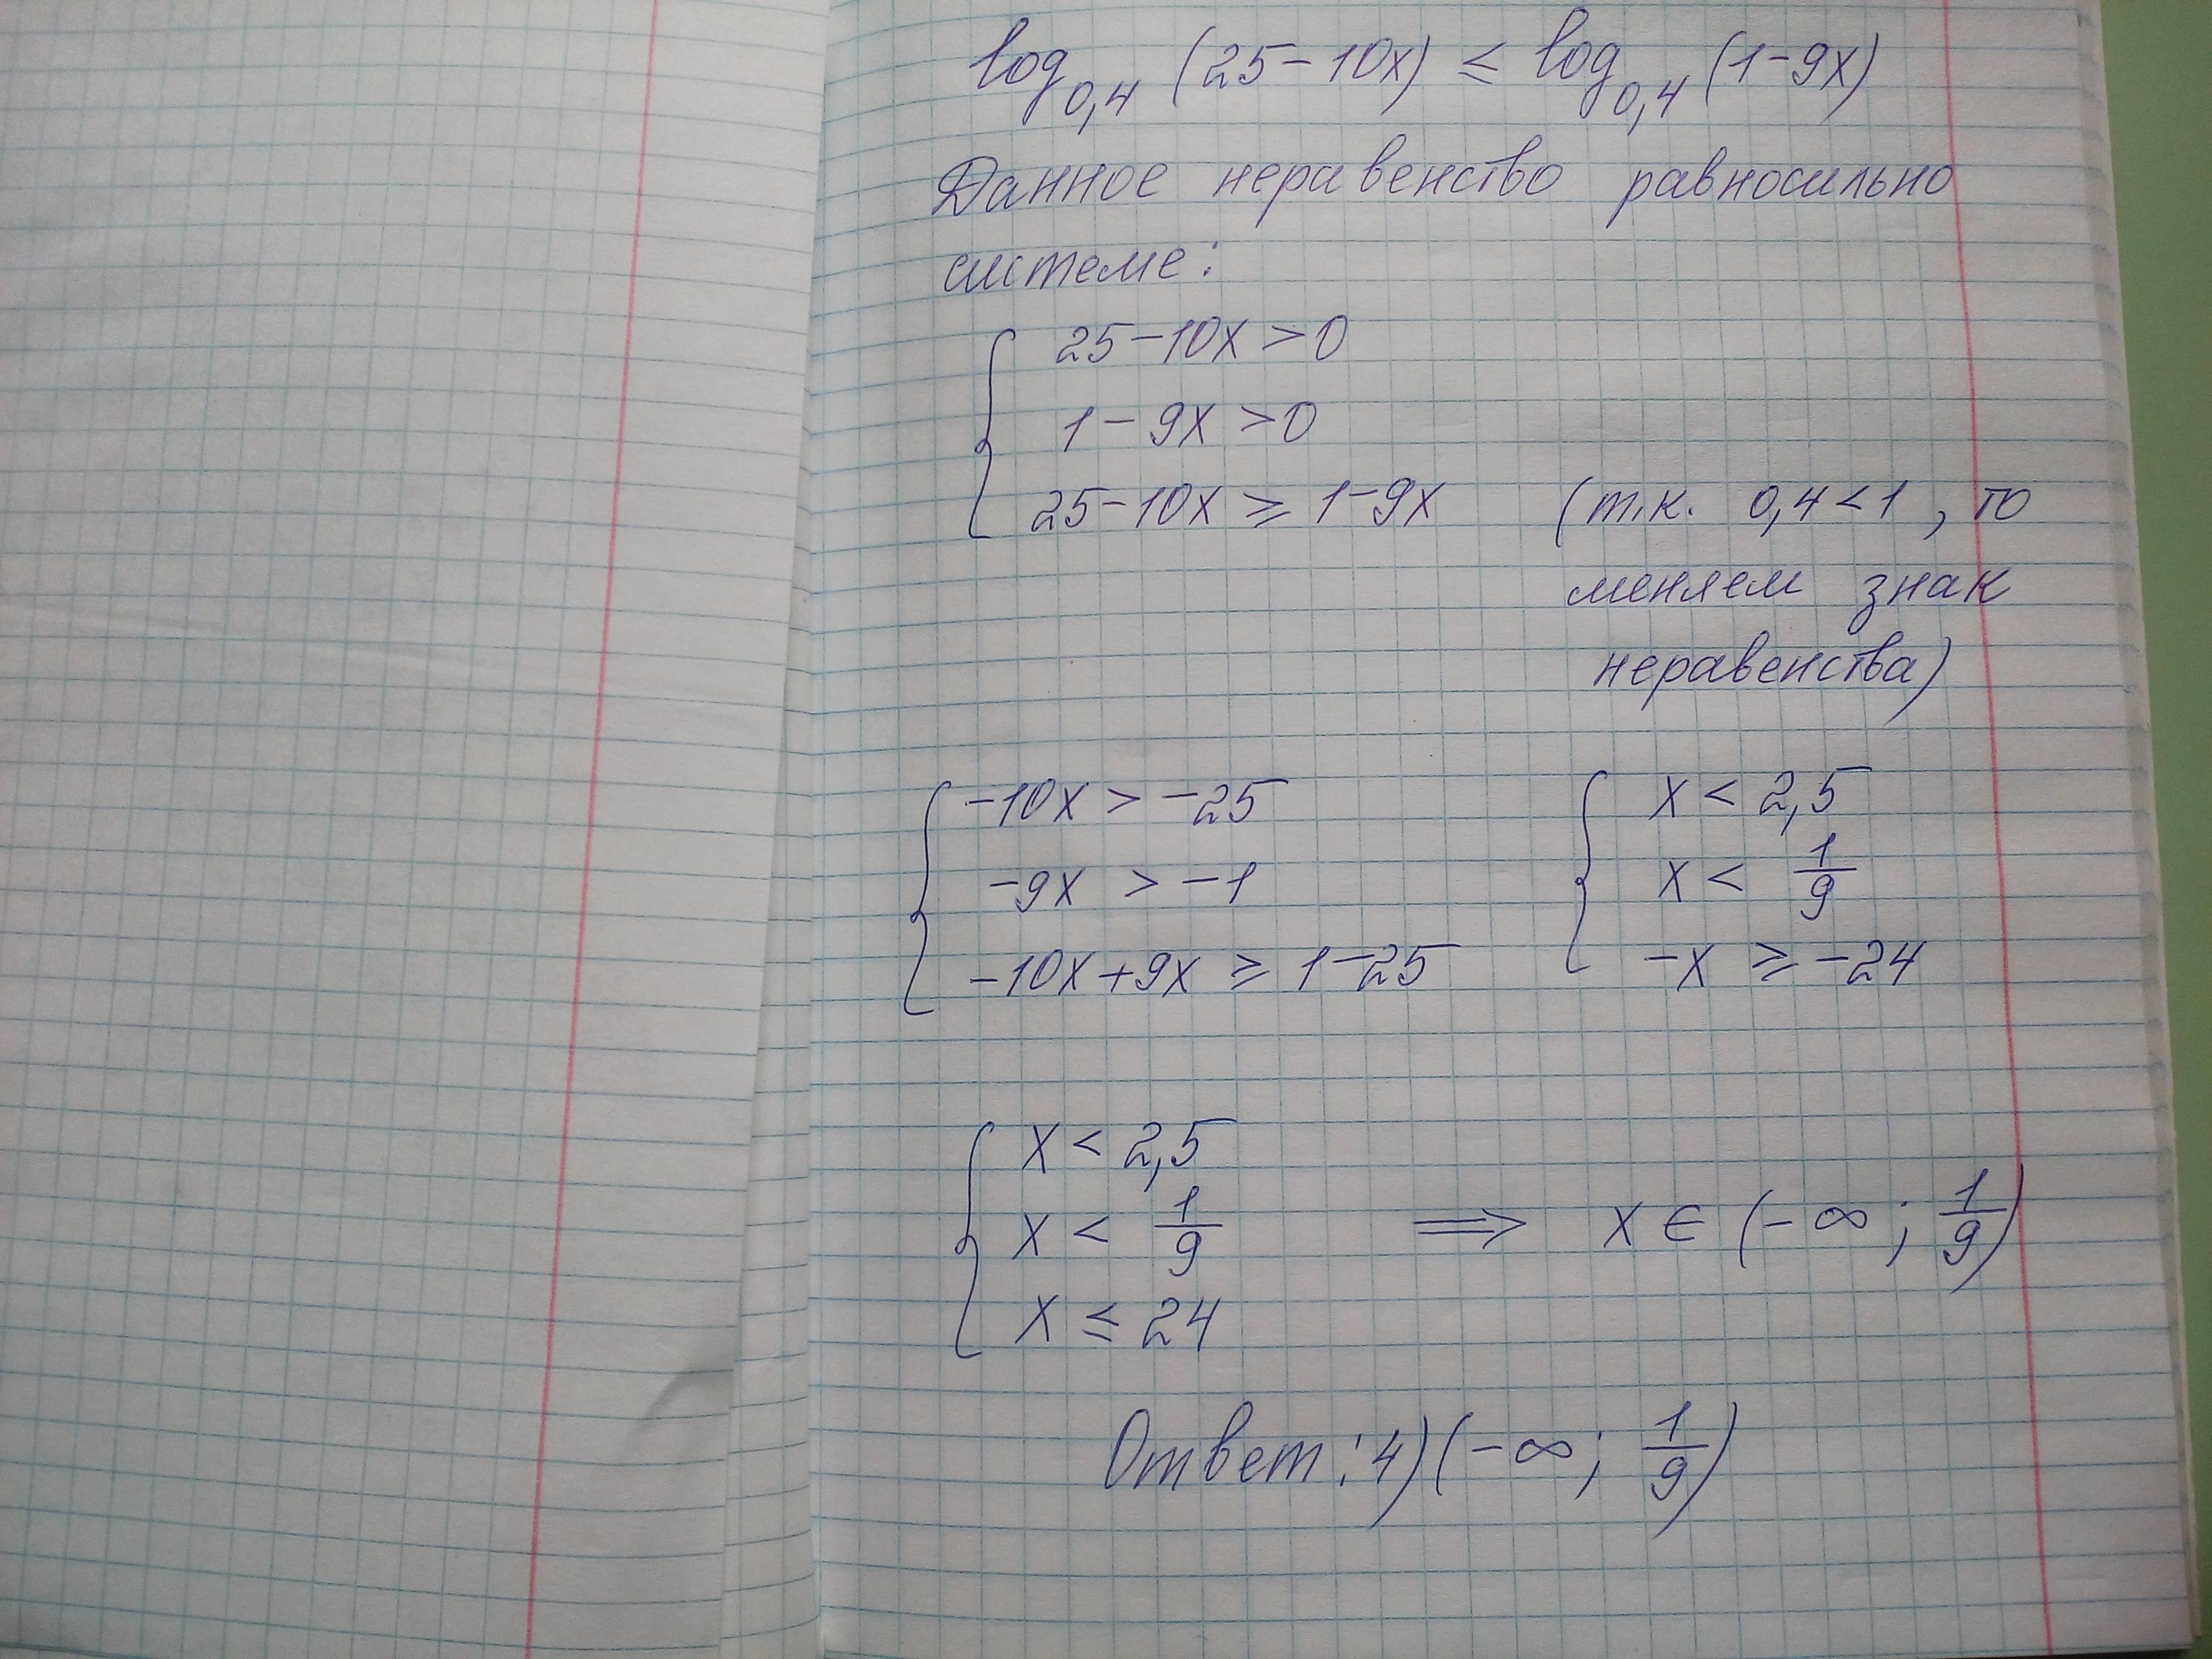 log₀,₄ (25-10x) ≤ log₀,₄ (1-9x)
Данное неравенство равносильно
системе:
25-10x >0
1-9x >0
25-10x ≥ 1-9x (т.к. 0,4<1, то
меняем знак
неравенства)
-10x > -25
-9x > -1
-10x+9x ≥ 1-25
x < 2,5
x < 1/9
-x ≥ -24
x < 2,5
x < 1/9
x ≤ 24
⟹ x ∈ (-∞; 1/9)
Ответ: 4) (-∞; 1/9)